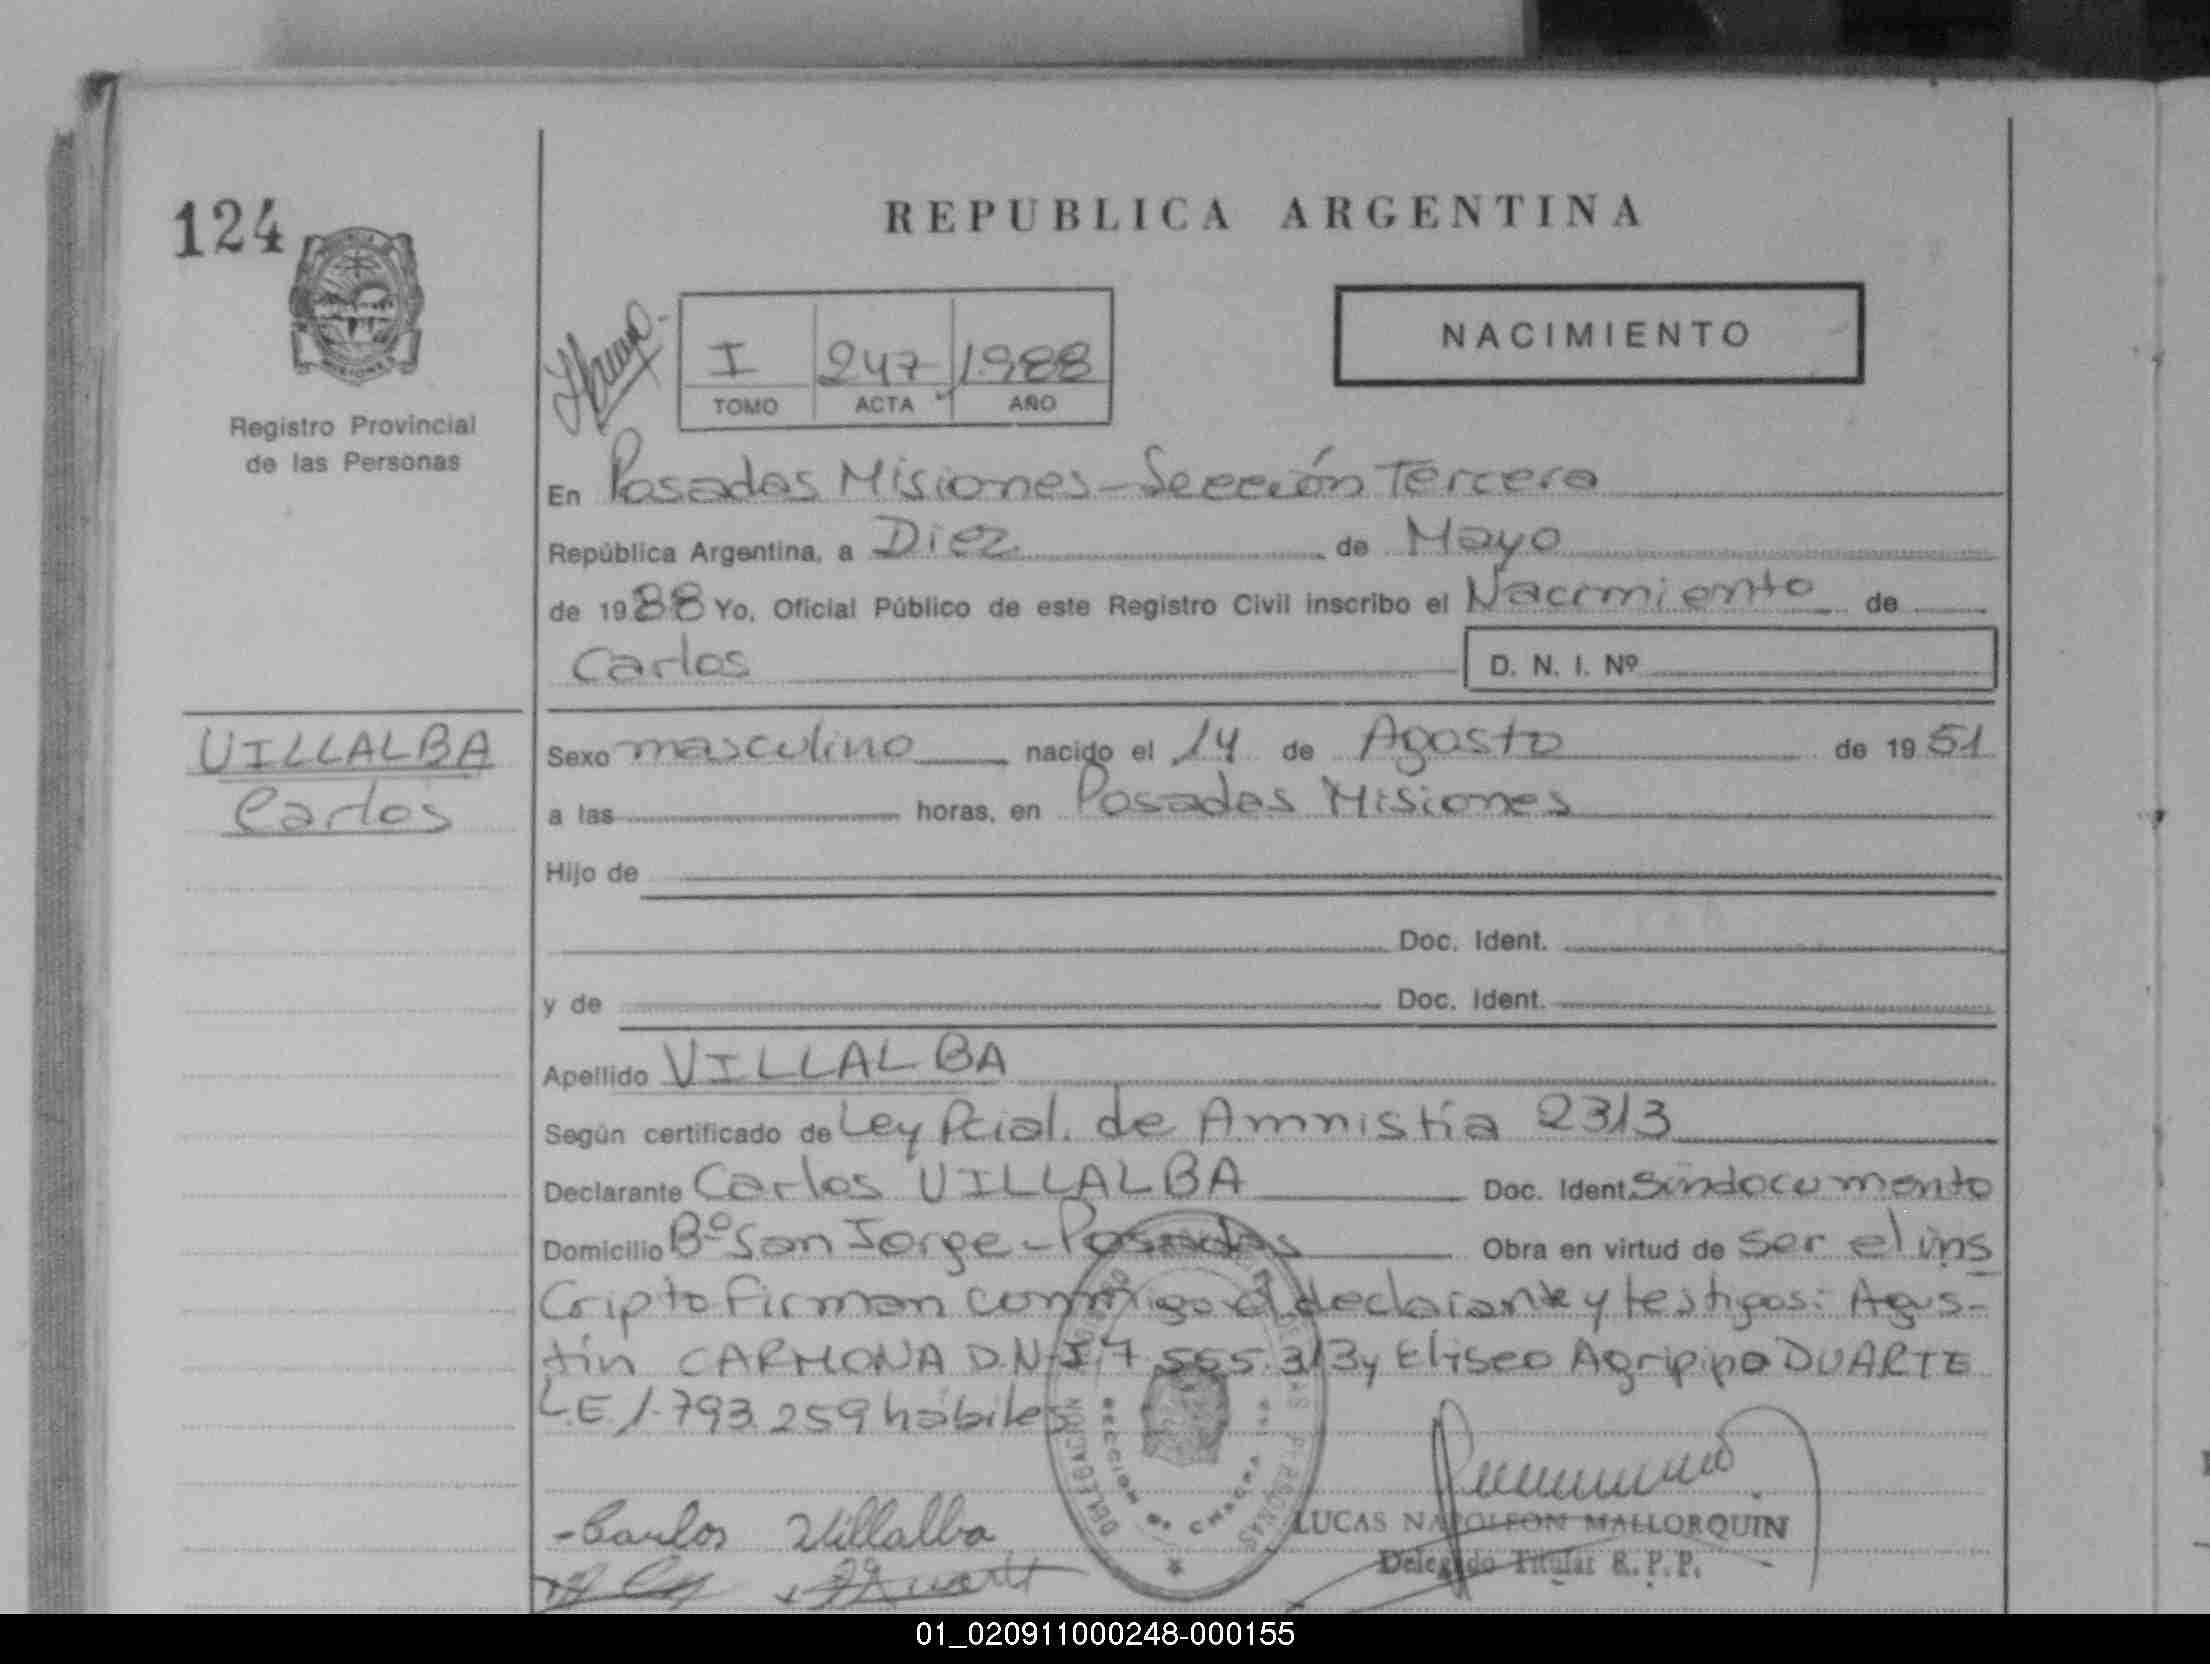 124
REPUBLICA ARGENTINA
NACIMIENTO
I 247 1988
TOMO ACTA AÑO
Registro Provincial
de las Personas
En Posadas Misiones - Sección Tercera
República Argentina, a Diez de Mayo
de 1988 Yo, Oficial Público de este Registro Civil inscribo el Nacimiento de
Carlos D. N. I. Nº
VILLALBA
Carlos
Sexo masculino nacido el 14 de Agosto de 1951
a las horas, en Posadas Misiones
Hijo de
Doc. Ident.
y de Doc. Ident.
Apellido VILLALBA
Según certificado de Ley Pcial. de Amnistía 2313
Declarante Carlos VILLALBA Doc. Ident. Sindocumento
Domicilio Bº San Jorge - Posadas Obra en virtud de ser el ins
cripto firman conmigo el declarante y testigos: Agus-
tín CARMONA D.N.I. 7.555.313 y Eliseo Agripino DUARTE
L.E. 1.793.259 hábiles
- Carlos Villalba
LUCAS NAPOLEON MALLORQUIN
Delegado Titular R. P. P.
01_020911000248-000155